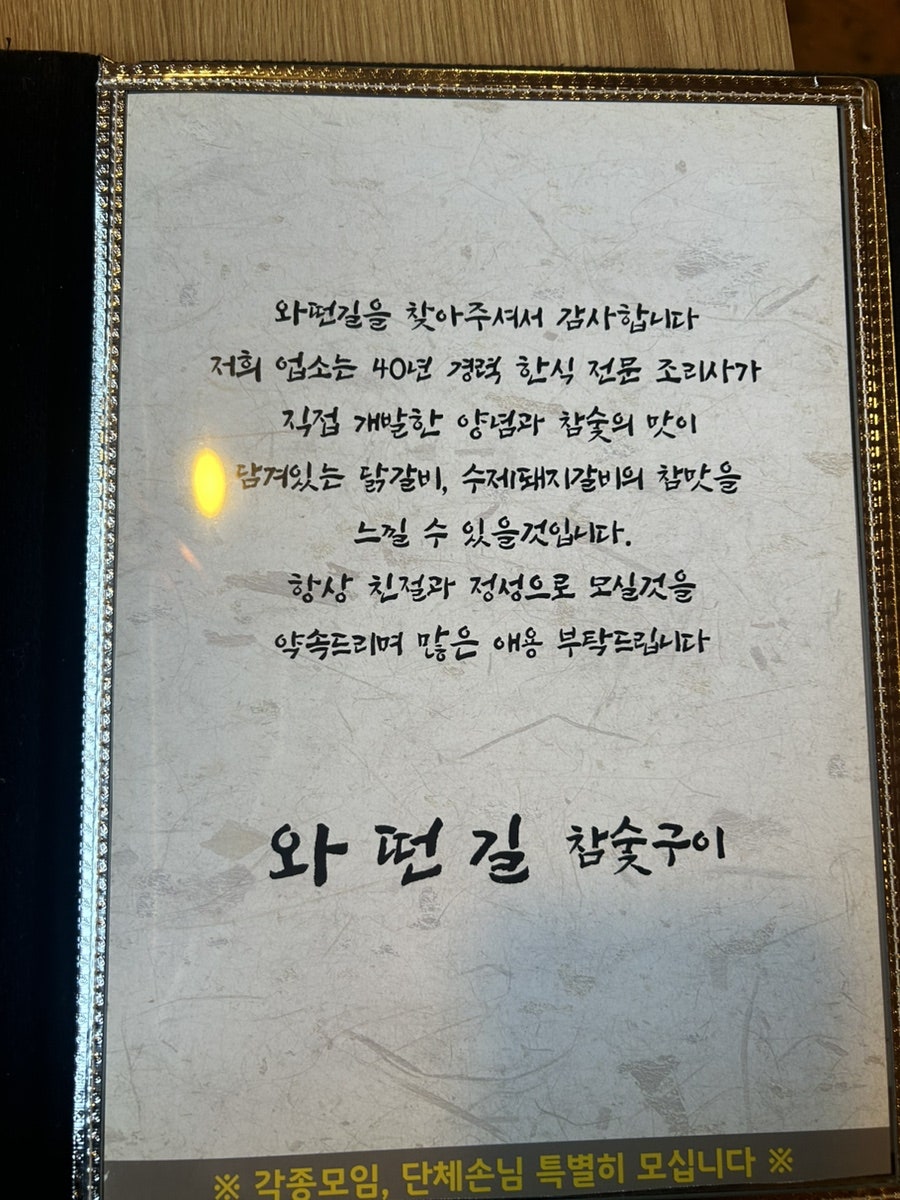 와떤길을 찾아주셔서 감사합니다
저희 업소는 40년 경력 한식 전문 조리사가
직접 개발한 양념과 참숯의 맛이
담겨있는 닭갈비, 수제돼지갈비의 참맛을
느낄 수 있을것입니다.
항상 친절과 정성으로 모실것을
약속드리며 많은 애용 부탁드립니다
와떤길 참숯구이
※ 각종모임, 단체손님 특별히 모십니다 ※